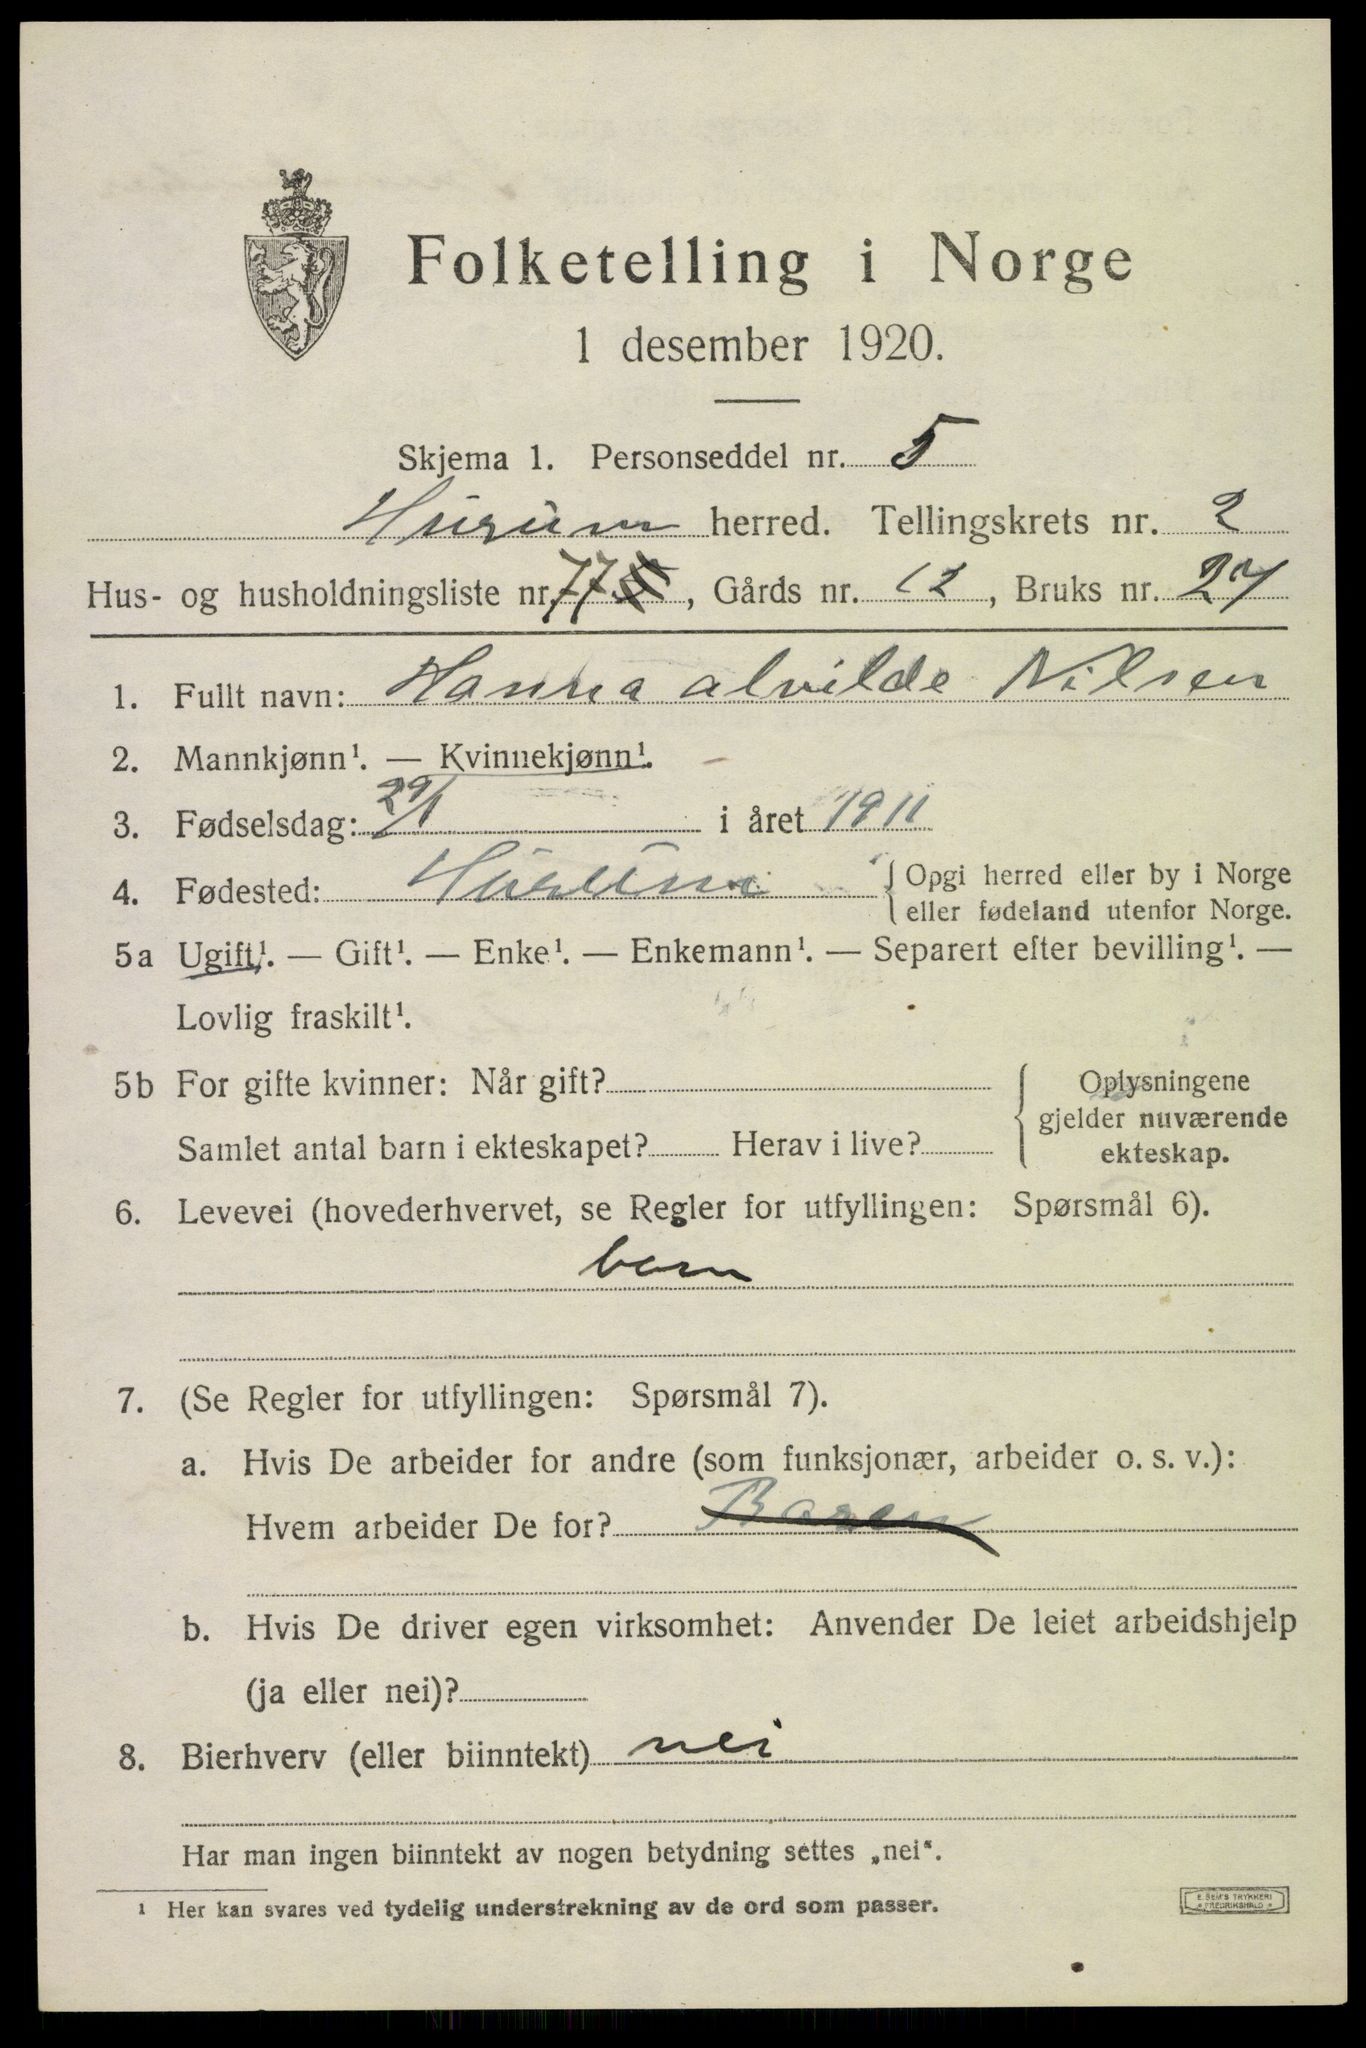 Folketelling i Norge
1 desember 1920.
Skjema 1. Personseddel nr. 5
Hurum herred. Tellingskrets nr. 2
Hus- og husholdningsliste nr. 77, Gårds nr. 12, Bruks nr. 27
1. Fullt navn: Hanna alvilde Nilsen
2. Mannkjønn¹. — Kvinnekjønn¹.
3. Fødselsdag: 29/1 i året 1911
4. Fødested: Hurum { Opgi herred eller by i Norge
eller fødeland utenfor Norge.
5a Ugift¹. — Gift¹. — Enke¹. — Enkemann¹. — Separert efter bevilling¹. —
Lovlig fraskilt¹.
5b For gifte kvinner: Når gift? { Oplysningene
gjelder nuværende
Samlet antal barn i ekteskapet? Herav i live? ekteskap.
6. Levevei (hovederhvervet, se Regler for utfyllingen: Spørsmål 6).
barn
7. (Se Regler for utfyllingen: Spørsmål 7).
a. Hvis De arbeider for andre (som funksjonær, arbeider o. s. v.):
Hvem arbeider De for? Baren
b. Hvis De driver egen virksomhet: Anvender De leiet arbeidshjelp
(ja eller nei)?
8. Bierhverv (eller biinntekt) nei
Har man ingen biinntekt av nogen betydning settes „nei“.
¹ Her kan svares ved tydelig understrekning av de ord som passer.
E. SEM'S TRYKKERI
* FREDRIKSHALD *